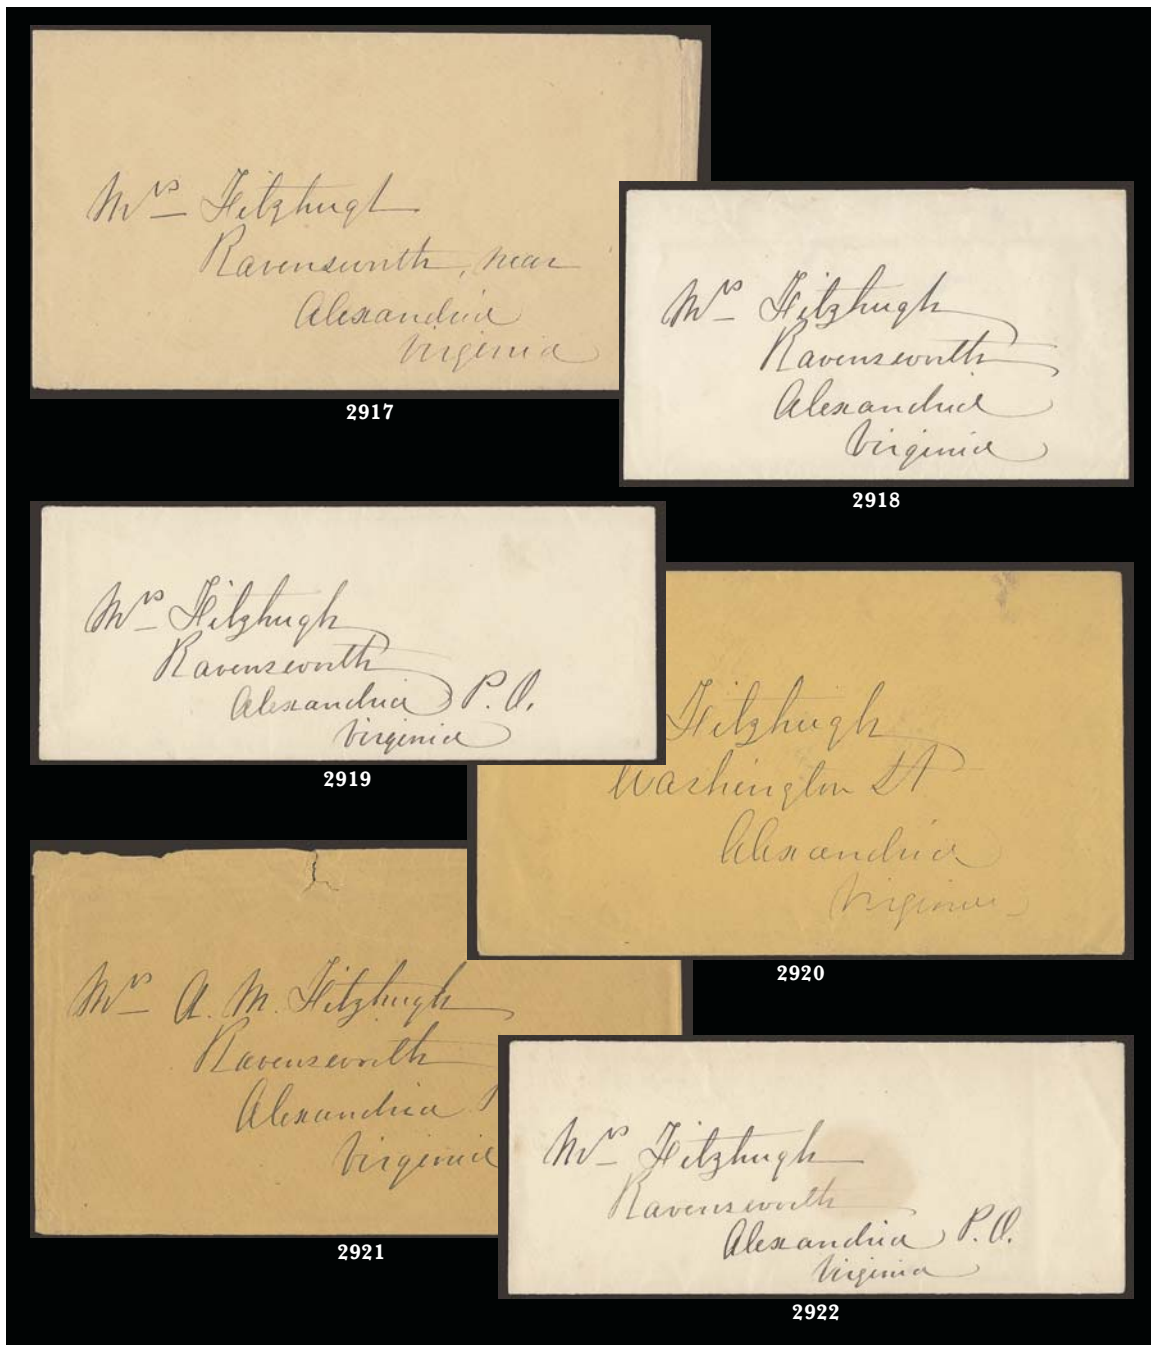 Mrs Fitzhugh
Ravensworth, near
Alexandria
Virginia
2917
Mrs Fitzhugh
Ravensworth
Alexandria
Virginia
2918
Mrs Fitzhugh
Ravensworth
Alexandria P. O.
Virginia
2919
Fitzhugh
Washington St
Alexandria
Virginia
2920
Mrs A. M. Fitzhugh
Ravensworth
Alexandria
Virginia
2921
Mrs Fitzhugh
Ravensworth
Alexandria P. O.
Virginia
2922